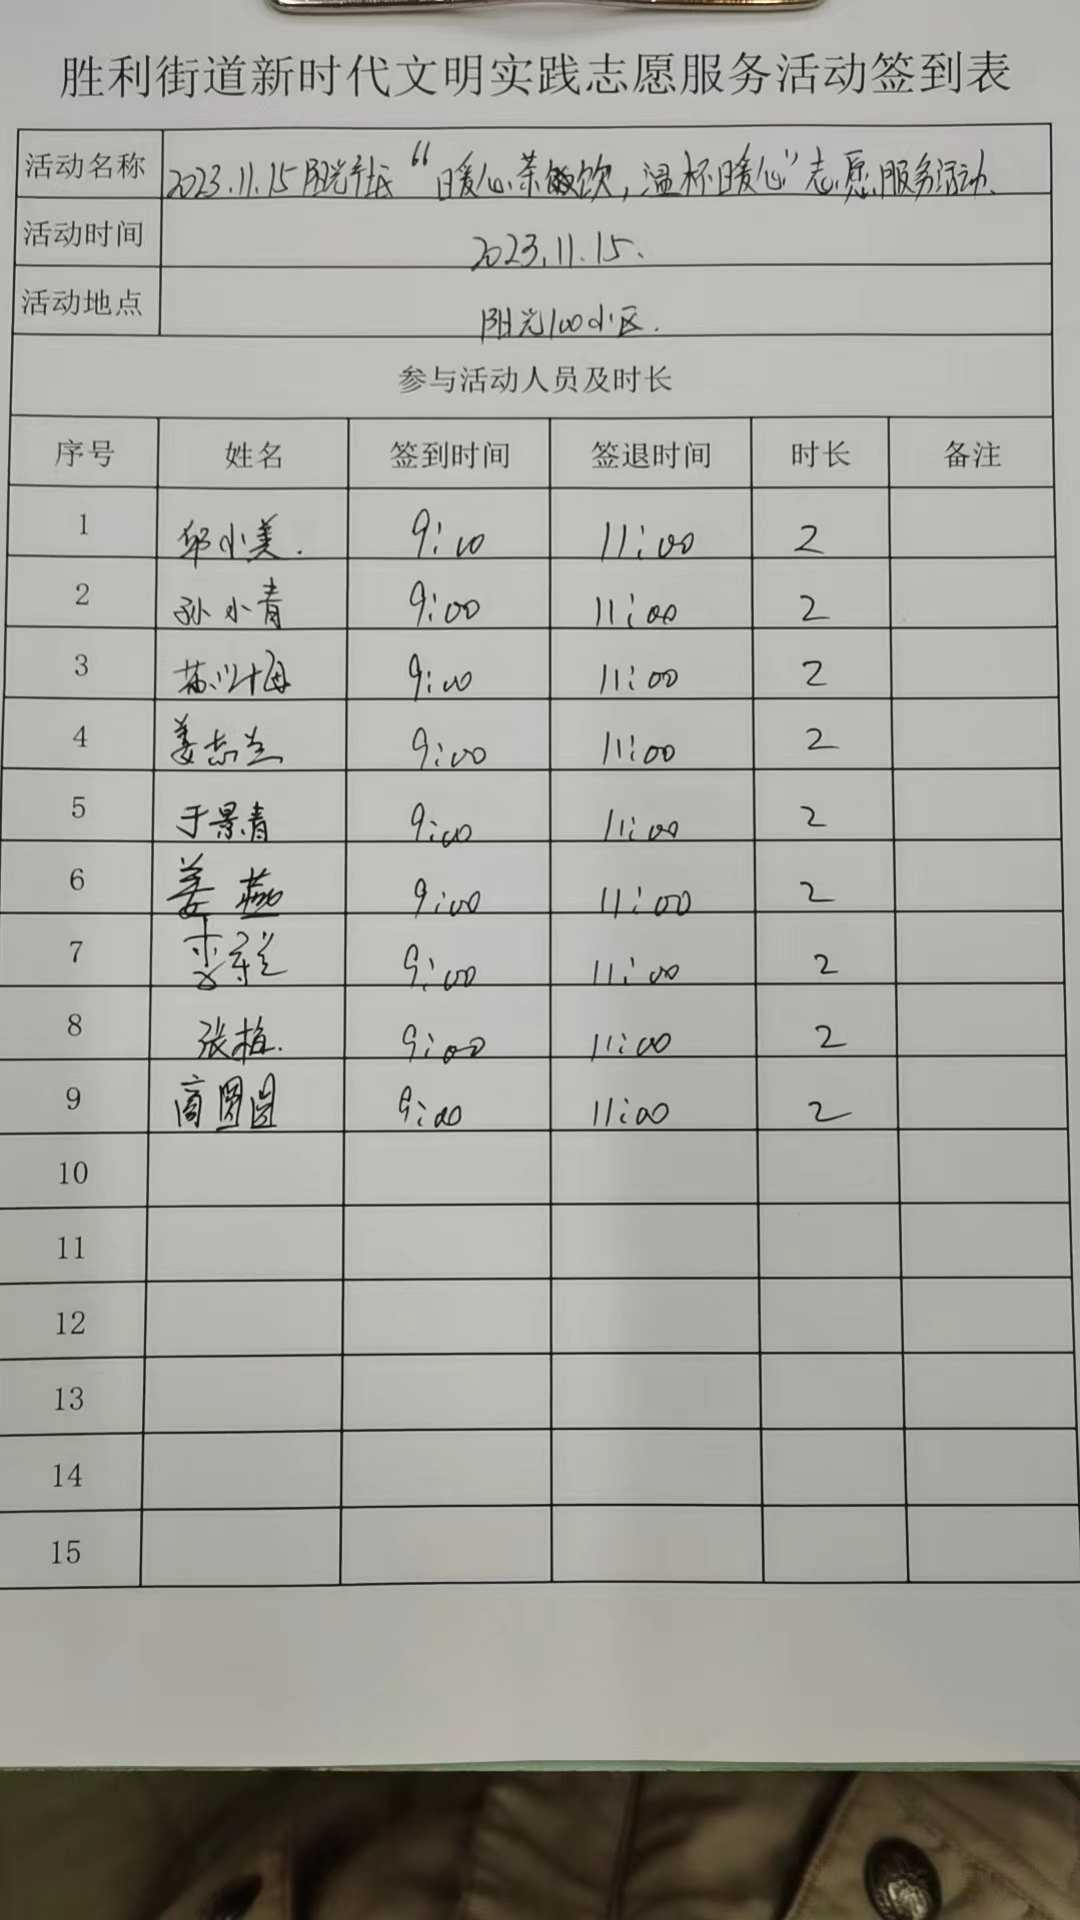 胜利街道新时代文明实践志愿服务活动签到表
活动名称 2023.11.15阳光社区“暖心茶饮,温杯暖心”志愿服务活动.
活动时间 2023.11.15.
活动地点 阳光100小区.
参与活动人员及时长
序号 姓名 签到时间 签退时间 时长 备注
1 邱小美. 9:00 11:00 2
2 孙小青 9:00 11:00 2
3 9:00 11:00 2
4 姜志兰 9:00 11:00 2
5 于景青 9:00 11:00 2
6 姜燕 9:00 11:00 2
7 李 9:00 11:00 2
8 张 9:00 11:00 2
9 商圆圆 9:00 11:00 2
10
11
12
13
14
15